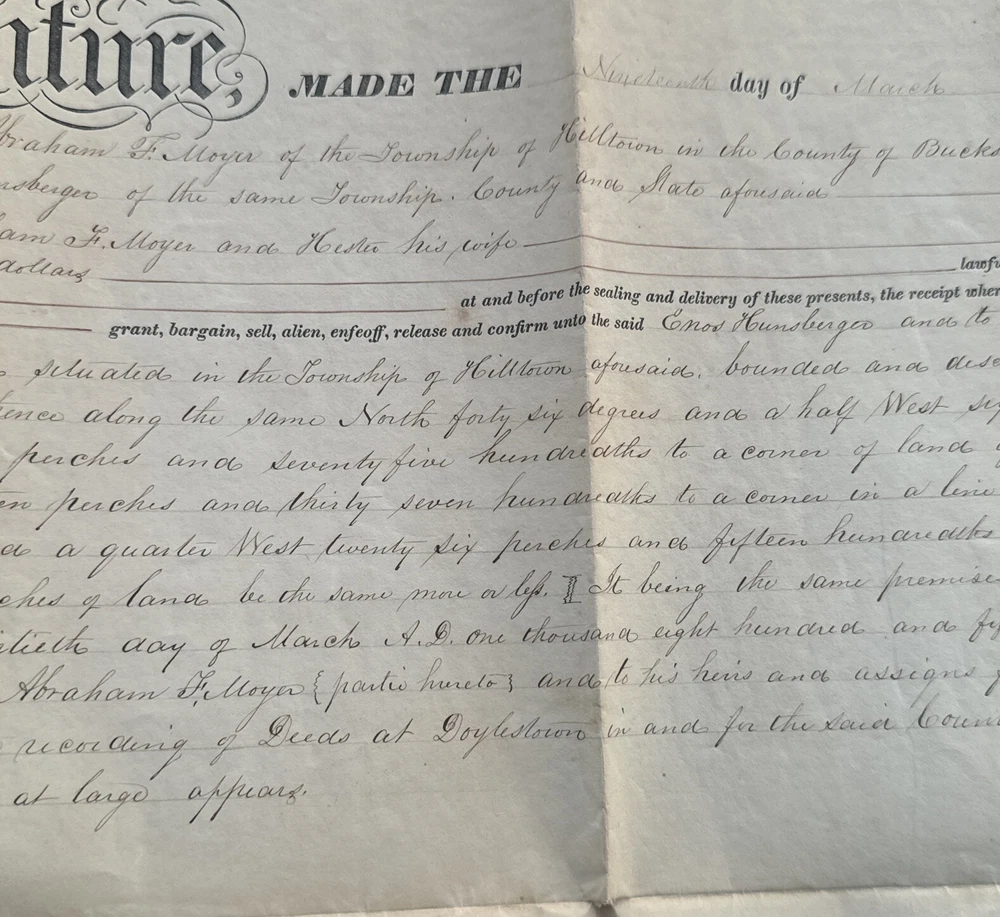 nture, MADE THE Nineteenth day of March
Abraham F. Moyer of the Township of Hilltown in the County of Bucks
nsberger of the same Township. County and State aforesaid
am F. Moyer and Hester his wife
dollars lawfu
at and before the sealing and delivery of these presents, the receipt wher
grant, bargain, sell, alien, enfeoff, release and confirm unto the said Enos Hunsberger and to
situated in the Township of Hilltown aforesaid. bounded and desc
ence along the same North forty six degrees and a half West six
perches and seventy five hundredths to a corner of land
en perches and thirty seven hundredths to a corner in a line
d a quarter West twenty six perches and fifteen hundredths
ches of land be the same more or less. It being the same premise
tieth day of March A.D. one thousand eight hundred and fif
Abraham F. Moyer {partie hereto} and to his heirs and assigns f
recording of Deeds at Doylestown in and for the said Coun
at large appears.